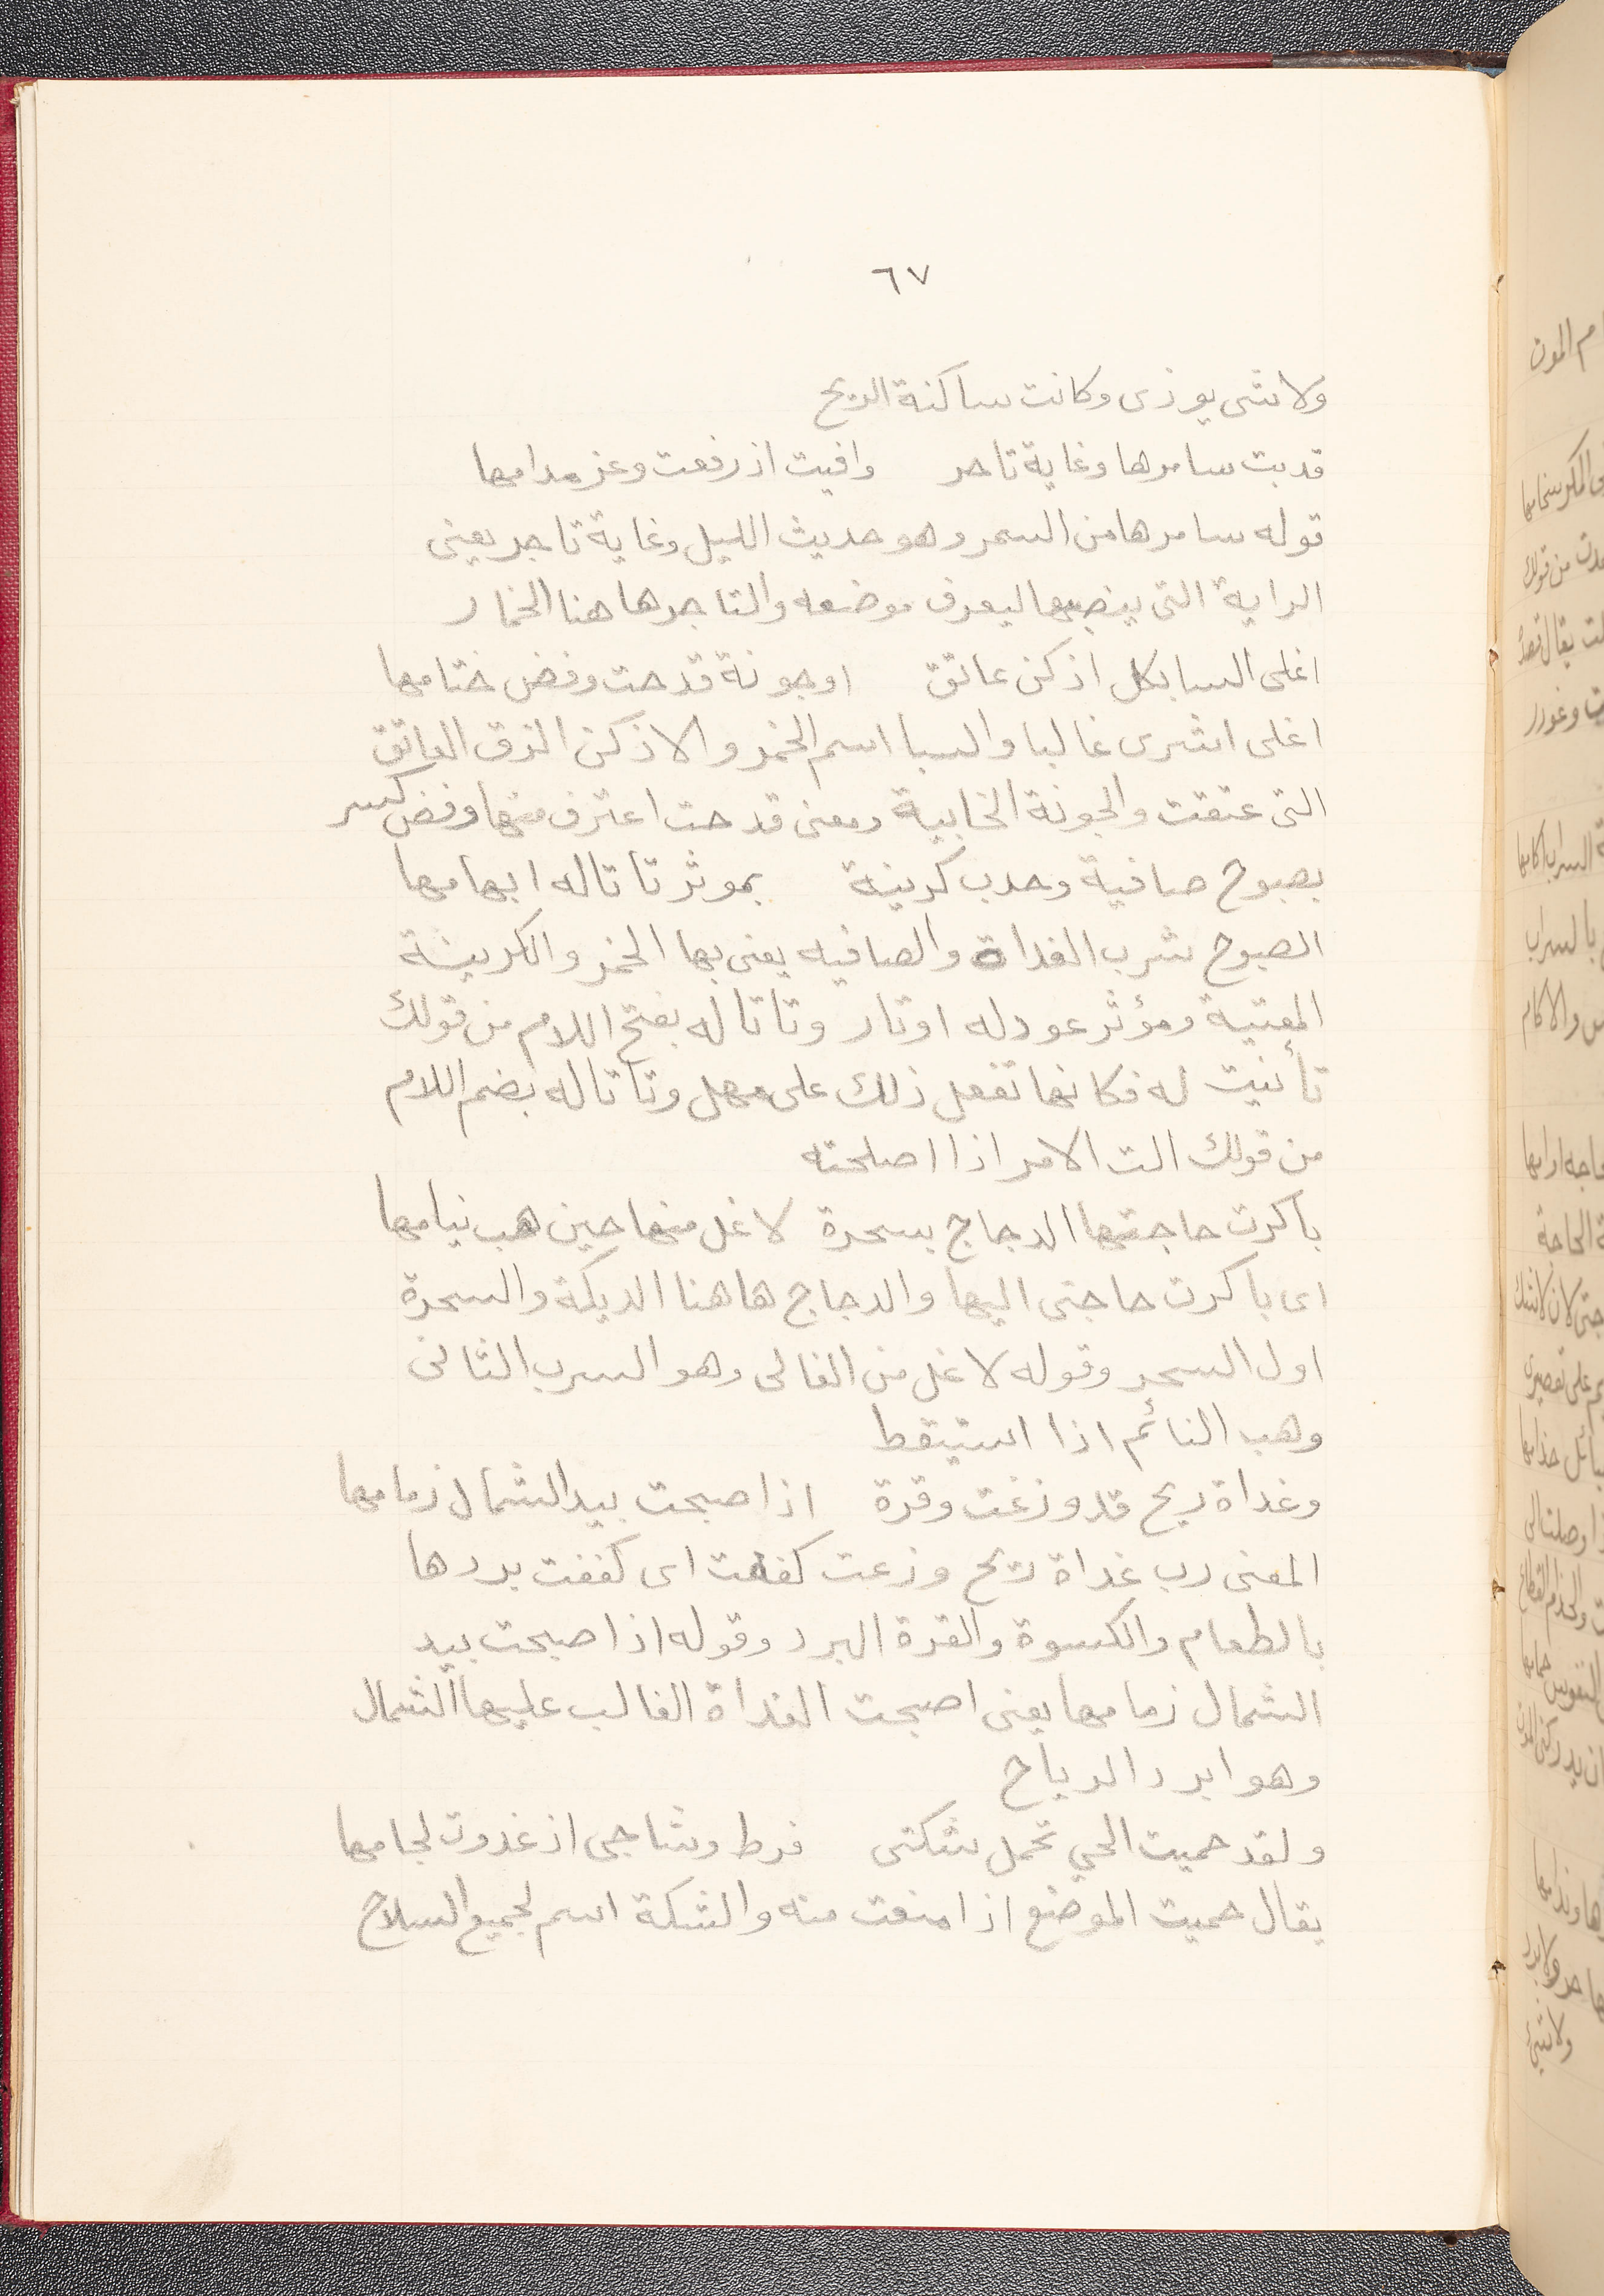 ٦٧
ولا شى يوذى وكانت ساكنة الريح
قد بت سامرها وغاية تاجر وافيت اذ رفعت وعز مدامها
قوله سامرها من السمر وهو حديث الليل وغاية تاجر يعنى
الراية التى ينصبها ليعرف موضعه والتاجر هاهنا الخمار
اغلى السبا بكل اذكن عاتق اوجونة قدحت وفض ختامها
اغلى اشرى غاليا والسبا اسم الخمر والاذكن الزق العاتق
التى عتقت والجونة الخابية ومعنى قدحت اعترف منها وفض كسر
بصبوح صافية وجدب كرينة بموثر تاتاله ابهامها
الصبوح شرب الغداة والصافيه يعنى بها الخمر والكرينة
المغنية ومؤثر عود له اوتار وتاتا له بفتح اللام من قولك
تأنيت له فكانها تفعل ذلك على مهل وتاتاله بضم اللام
من قولك الت الامر اذا اصلحته
باكرت حاجتها الدجاج بسحرة لاغل منها حين هب نيامها
اى باكرت حاجتى اليها والدجاج هاهنا الديكة والسحرة
اول السحر وقوله لاغل من الغالى وهو السرب الثانى
وهب النائم اذا استيقط
وغداة ريح قد وزغت وقرة اذا صبحت بيد الشمال زمامها
المعنى رب غداة ريح وزعت كففت اى كففت بردها
بالطعام والكسوة والقرة البرد وقوله اذا صبحت بيد
الشمال زمامها يعنى اصبحت الغداة الغالب عليها الشمال
وهو ابرد الرياح
ولقد حميت الحي تحمل شكتى فرط وشاجى اذ غدوت لجامها
يقال حميت الموضع اذا منعت منه والشكة اسم لجميع السلاح